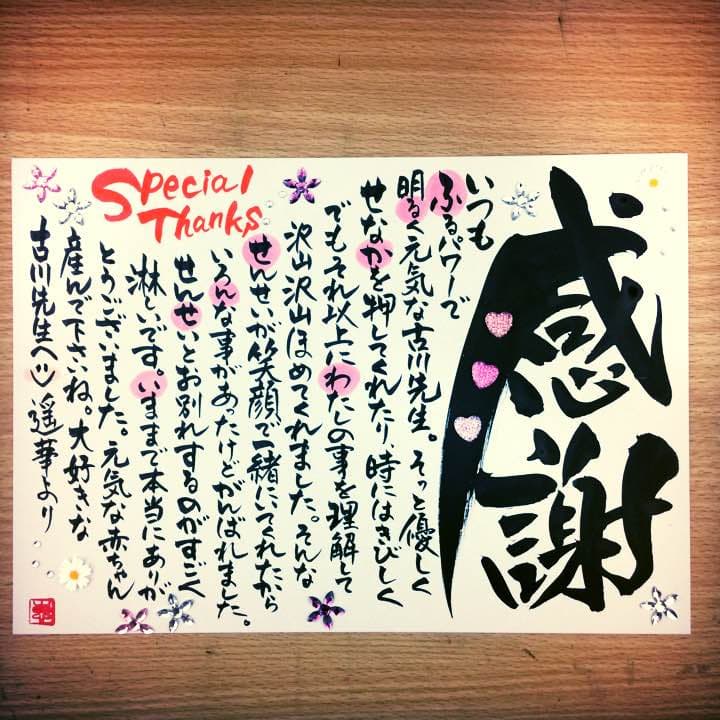 感謝
いつも
ふるパワーで
明るく元気な古川先生。そっと優しく
せなかを押してくれたり、時にはきびしく
でもそれ以上にわたしの事を理解して
沢山沢山ほめてくれました。そんな
せんせいが笑顔で一緒にいてくれたから
いろんな事があったけどがんばれました。
せんせいとお別れするのがすごく
淋しいです。いままで本当にありが
とうございました。元気な赤ちゃん
産んで下さいね。大好きな
古川先生へ 遙華より
Special
Thanks